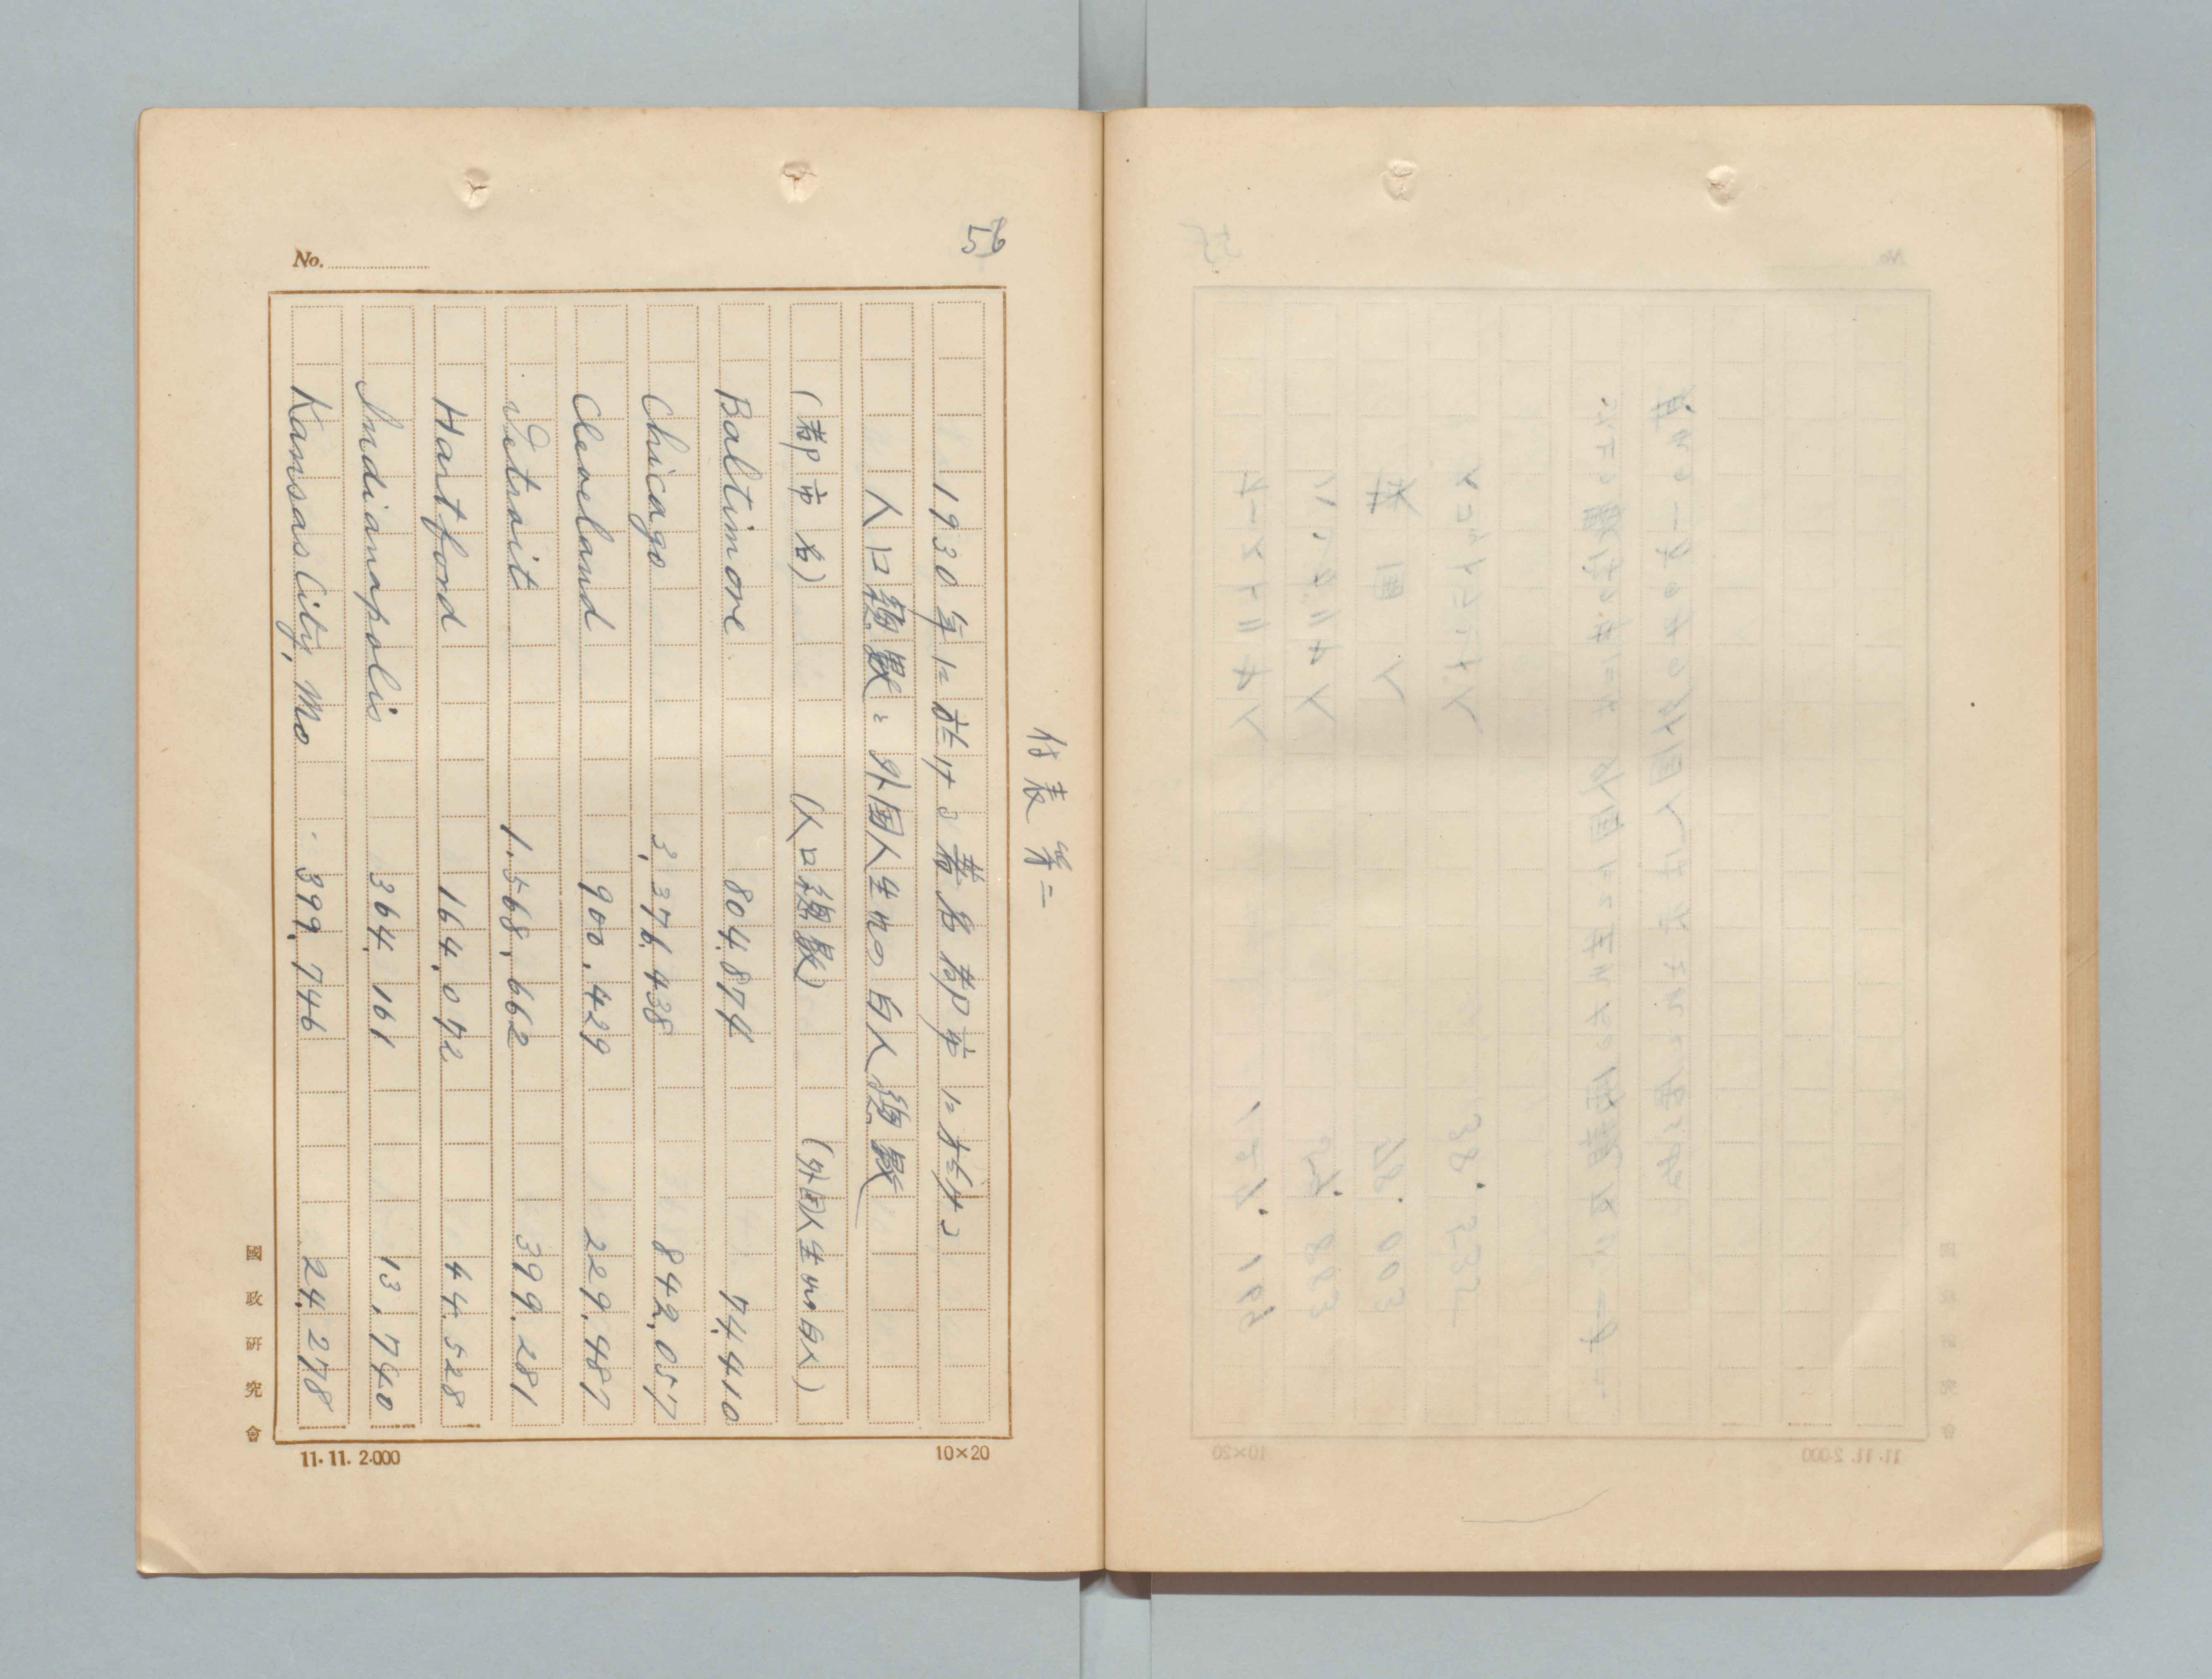 56
No.
付表第二
1930年に於ける著名都市に於ける
人口総数ニ外国人生れの白人総数
(都市名) (人口総数) (外国人生れの白人)
Baltimore 804.874 74.410
Chicago 3.376.438 842.057
Cleveland 900.429 229.487
Detroit 1.568.662 399.281
Hartford 164.072 44.528
Indianapolis 364.161 13.740
Kansas City, Mo 399.746 24.278
國政研究會
11.11. 2.000
10×20